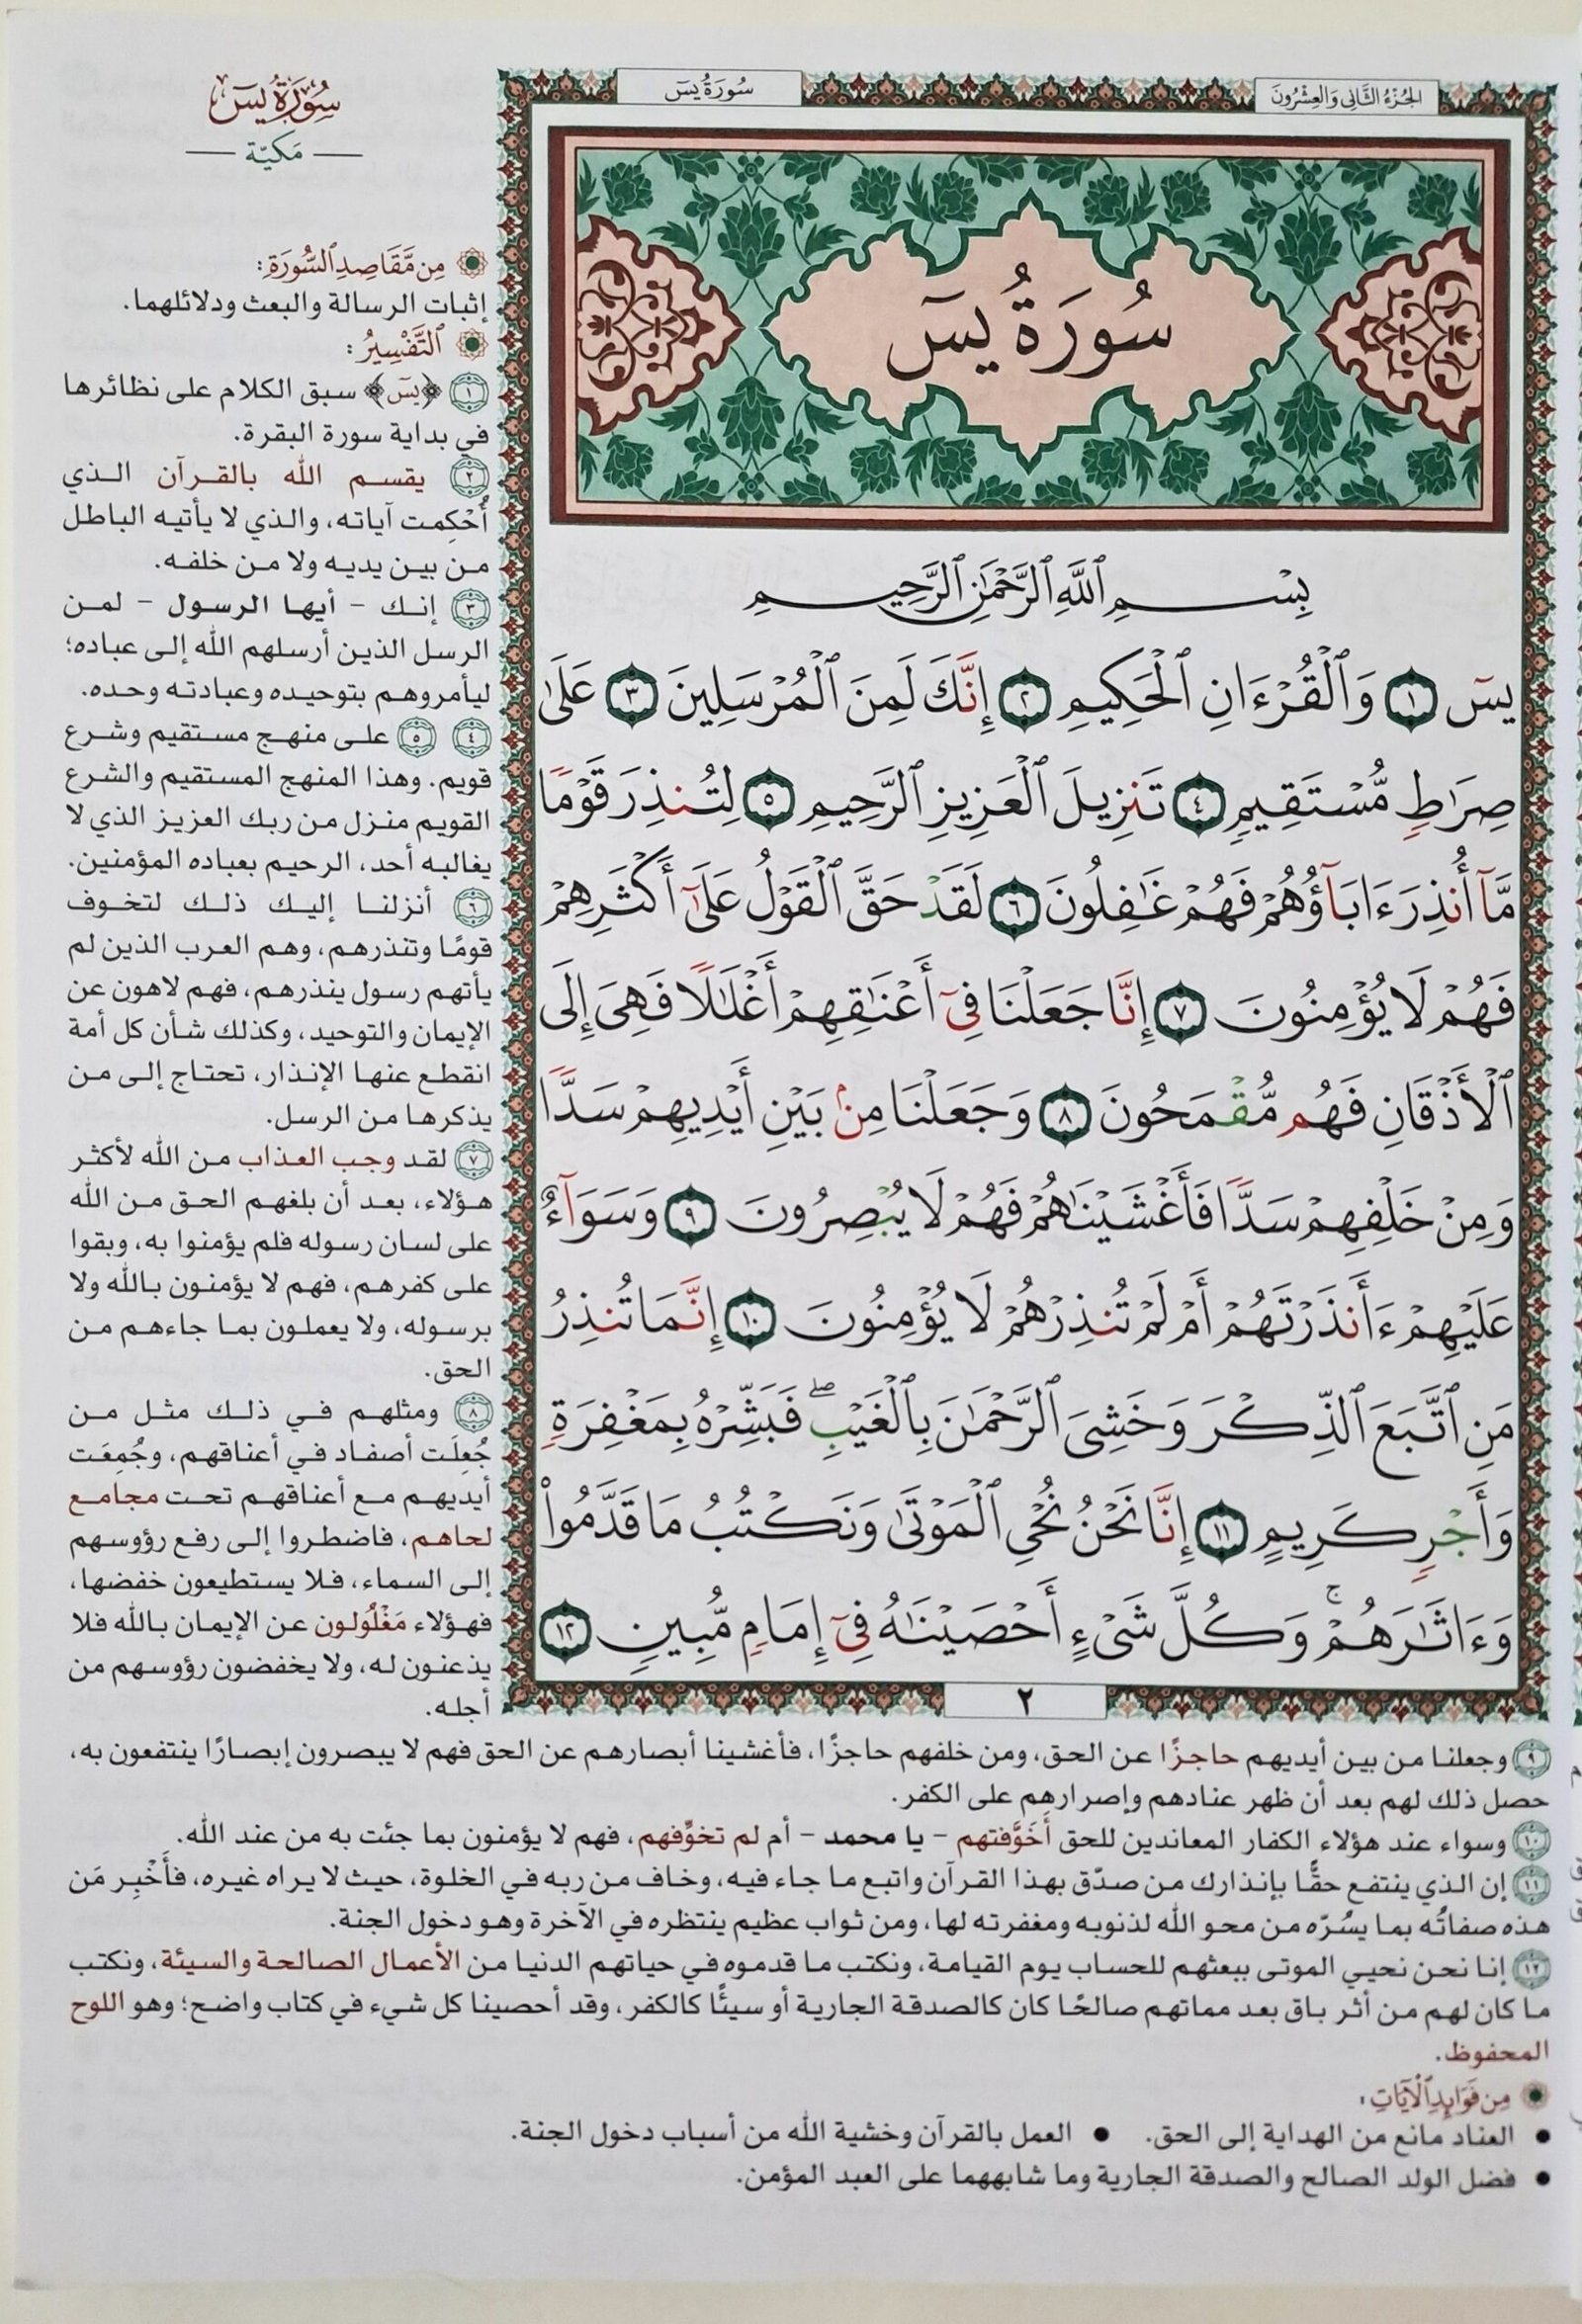 الجُزْءُ الثَّانِي وَالعِشْرُونَ
سُورَةُ يسٓ
سُورَةُ يسٓ
بِسْمِ ٱللَّهِ ٱلرَّحْمَٰنِ ٱلرَّحِيمِ
يسٓ ١ وَٱلْقُرْءَانِ ٱلْحَكِيمِ ٢ إِنَّكَ لَمِنَ ٱلْمُرْسَلِينَ ٣ عَلَىٰ
صِرَٰطٍ مُّسْتَقِيمٍ ٤ تَنزِيلَ ٱلْعَزِيزِ ٱلرَّحِيمِ ٥ لِتُنذِرَ قَوْمًا
مَّآ أُنذِرَ ءَابَآؤُهُمْ فَهُمْ غَٰفِلُونَ ٦ لَقَدْ حَقَّ ٱلْقَوْلُ عَلَىٰٓ أَكْثَرِهِمْ
فَهُمْ لَا يُؤْمِنُونَ ٧ إِنَّا جَعَلْنَا فِىٓ أَعْنَٰقِهِمْ أَغْلَٰلًا فَهِىَ إِلَى
ٱلْأَذْقَانِ فَهُم مُّقْمَحُونَ ٨ وَجَعَلْنَا مِنۢ بَيْنِ أَيْدِيهِمْ سَدًّا
وَمِنْ خَلْفِهِمْ سَدًّا فَأَغْشَيْنَٰهُمْ فَهُمْ لَا يُبْصِرُونَ ٩ وَسَوَآءٌ
عَلَيْهِمْ ءَأَنذَرْتَهُمْ أَمْ لَمْ تُنذِرْهُمْ لَا يُؤْمِنُونَ ١٠ إِنَّمَا تُنذِرُ
مَنِ ٱتَّبَعَ ٱلذِّكْرَ وَخَشِىَ ٱلرَّحْمَٰنَ بِٱلْغَيْبِ ۖ فَبَشِّرْهُ بِمَغْفِرَةٍ
وَأَجْرٍ كَرِيمٍ ١١ إِنَّا نَحْنُ نُحْىِ ٱلْمَوْتَىٰ وَنَكْتُبُ مَا قَدَّمُوا۟
وَءَاثَٰرَهُمْ ۚ وَكُلَّ شَىْءٍ أَحْصَيْنَٰهُ فِىٓ إِمَامٍ مُّبِينٍ ١٢
٢
سُورَةُ يسٓ
مَكيّة
مِن مَّقَاصِدِ ٱلسُّورَةِ:
إثبات الرسالة والبعث ودلائلهما.
ٱلتَّفْسِيرُ:
١ ﴿يسٓ﴾ سبق الكلام على نظائرها
في بداية سورة البقرة.
٢ يقسم الله بالقرآن الذي
أُحْكِمت آياته، والذي لا يأتيه الباطل
من بين يديه ولا من خلفه.
٣ إنك - أيها الرسول - لمن
الرسل الذين أرسلهم الله إلى عباده؛
ليأمروهم بتوحيده وعبادته وحده.
٤ ٥ على منهج مستقيم وشرع
قويم. وهذا المنهج المستقيم والشرع
القويم منزل من ربك العزيز الذي لا
يغالبه أحد، الرحيم بعباده المؤمنين.
٦ أنزلنا إليك ذلك لتخوف
قومًا وتنذرهم، وهم العرب الذين لم
يأتهم رسول ينذرهم، فهم لاهون عن
الإيمان والتوحيد، وكذلك شأن كل أمة
انقطع عنها الإنذار، تحتاج إلى من
يذكرها من الرسل.
٧ لقد وجب العذاب من الله لأكثر
هؤلاء، بعد أن بلغهم الحق من الله
على لسان رسوله فلم يؤمنوا به، وبقوا
على كفرهم، فهم لا يؤمنون بالله ولا
برسوله، ولا يعملون بما جاءهم من
الحق.
٨ ومثلهم في ذلك مثل من
جُعِلَت أصفاد في أعناقهم، وجُمِعَت
أيديهم مع أعناقهم تحت مجامع
لحاهم، فاضطروا إلى رفع رؤوسهم
إلى السماء، فلا يستطيعون خفضها،
فهؤلاء مَغْلُولون عن الإيمان بالله فلا
يذعنون له، ولا يخفضون رؤوسهم من
أجله.
٩ وجعلنا من بين أيديهم حاجزًا عن الحق، ومن خلفهم حاجزًا، فأغشينا أبصارهم عن الحق فهم لا يبصرون إبصارًا ينتفعون به،
حصل ذلك لهم بعد أن ظهر عنادهم وإصرارهم على الكفر.
١٠ وسواء عند هؤلاء الكفار المعاندين للحق أَخَوَّفتهم - يا محمد - أم لم تخوِّفهم، فهم لا يؤمنون بما جئت به من عند الله.
١١ إن الذي ينتفع حقًّا بإنذارك من صدّق بهذا القرآن واتبع ما جاء فيه، وخاف من ربه في الخلوة، حيث لا يراه غيره، فأَخْبِر مَن
هذه صفاتُه بما يسُرّه من محو الله لذنوبه ومغفرته لها، ومن ثواب عظيم ينتظره في الآخرة وهو دخول الجنة.
١٢ إنا نحن نحيي الموتى ببعثهم للحساب يوم القيامة، ونكتب ما قدموه في حياتهم الدنيا من الأعمال الصالحة والسيئة، ونكتب
ما كان لهم من أثر باق بعد مماتهم صالحًا كان كالصدقة الجارية أو سيئًا كالكفر، وقد أحصينا كل شيء في كتاب واضح؛ وهو اللوح
المحفوظ.
مِن فَوَائِدِ ٱلْآيَاتِ:
• العناد مانع من الهداية إلى الحق. • العمل بالقرآن وخشية الله من أسباب دخول الجنة.
• فضل الولد الصالح والصدقة الجارية وما شابههما على العبد المؤمن.